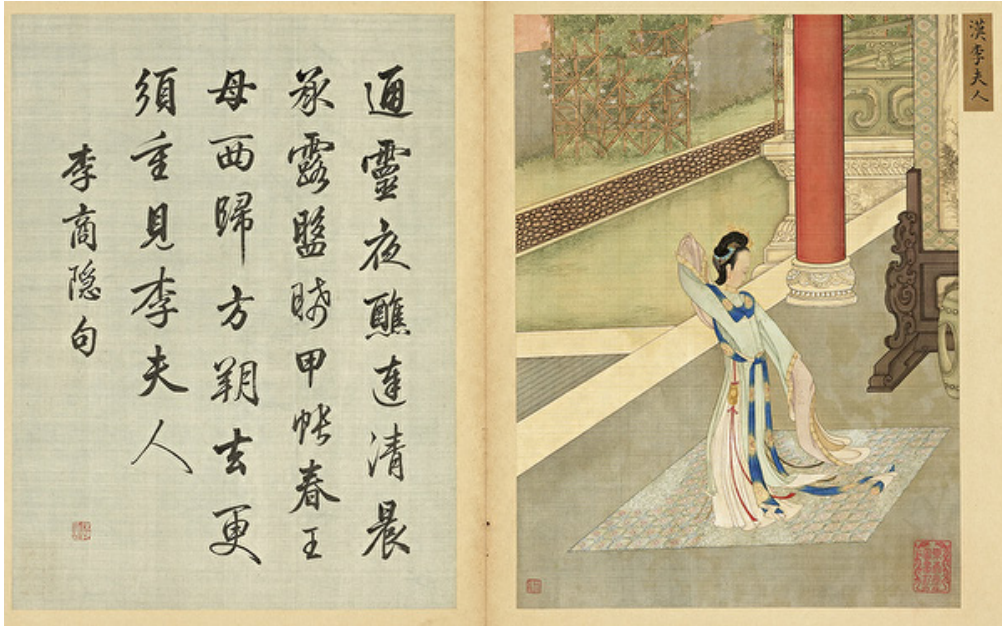 漢李夫人
通靈夜醮達清晨
承露盤晞甲帳春王
母西歸方朔去更
須重見李夫人
李商隐句